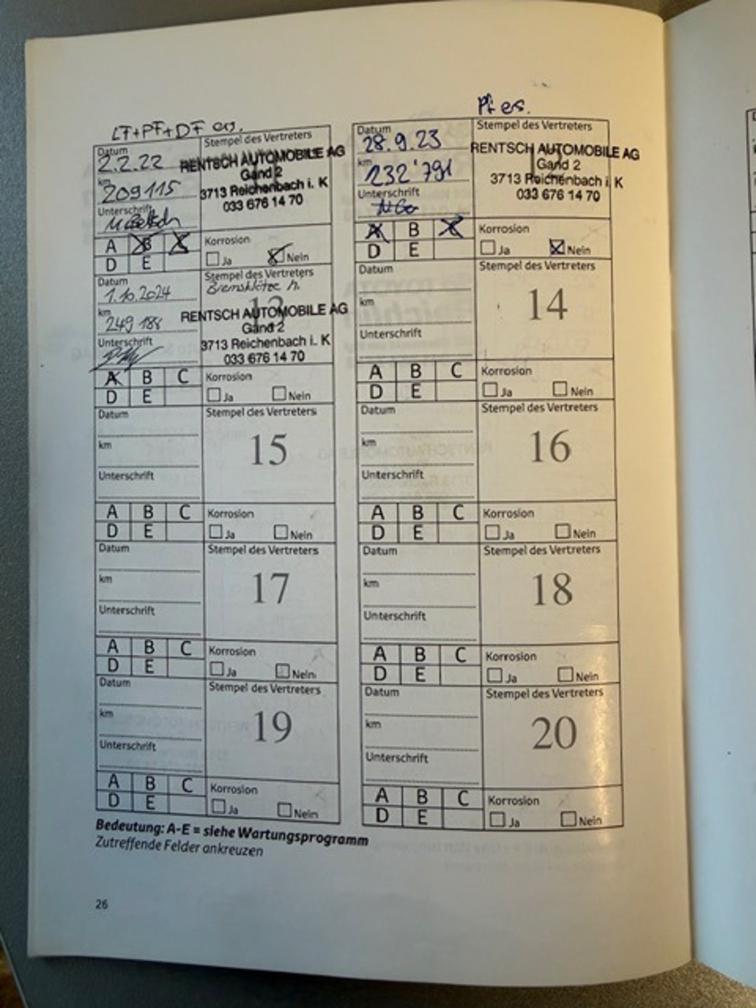 LF+PF+DF ers.
Datum
2.2.22
km
209115
Unterschrift
Stempel des Vertreters
RENTSCH AUTOMOBILE AG
Gand 2
3713 Reichenbach i. K
033 676 14 70
A B X
D E
Korrosion
Ja Nein
Pf ers.
Datum
28.9.23
km
232'791
Unterschrift
Stempel des Vertreters
RENTSCH AUTOMOBILE AG
Gand 2
3713 Reichenbach i. K
033 676 14 70
A B X
D E
Korrosion
Ja Nein
Datum
1.10.2024
km
249 188
Unterschrift
Stempel des Vertreters
Bremsklötze h.
13
RENTSCH AUTOMOBILE AG
Gand 2
3713 Reichenbach i. K
033 676 14 70
A B C
D E
Korrosion
Ja Nein
Datum
km
Unterschrift
Stempel des Vertreters
14
A B C
D E
Korrosion
Ja Nein
Datum
km
Unterschrift
Stempel des Vertreters
15
A B C
D E
Korrosion
Ja Nein
Datum
km
Unterschrift
Stempel des Vertreters
16
A B C
D E
Korrosion
Ja Nein
Datum
km
Unterschrift
Stempel des Vertreters
17
A B C
D E
Korrosion
Ja Nein
Datum
km
Unterschrift
Stempel des Vertreters
18
A B C
D E
Korrosion
Ja Nein
Datum
km
Unterschrift
Stempel des Vertreters
19
A B C
D E
Korrosion
Ja Nein
Datum
km
Unterschrift
Stempel des Vertreters
20
A B C
D E
Korrosion
Ja Nein
Bedeutung: A-E = siehe Wartungsprogramm
Zutreffende Felder ankreuzen
26